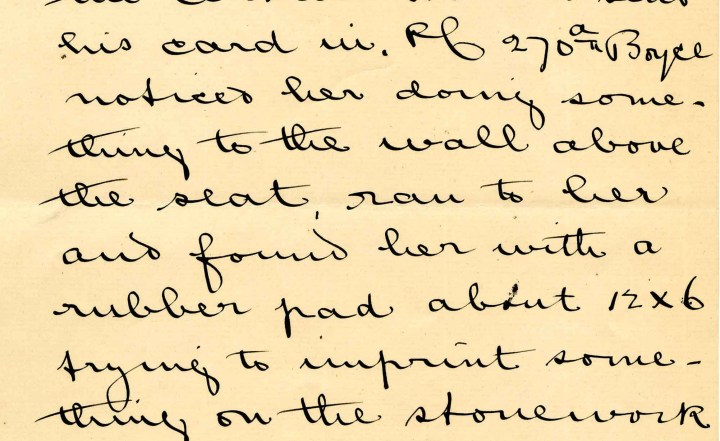 his card in. PC 270 A Boyce
noticed her doing some-
thing to the wall above
the seat, ran to her
and found her with a
rubber pad about 12 x 6
trying to imprint some-
thing on the stonework